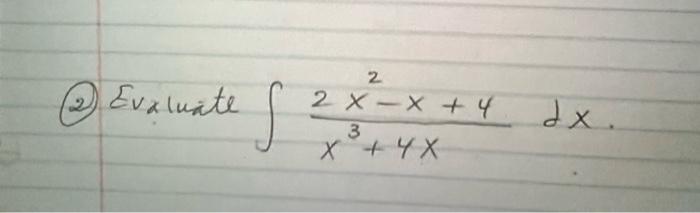 ② Evaluate ∫ (2x² - x + 4)/(x³ + 4x) dx.